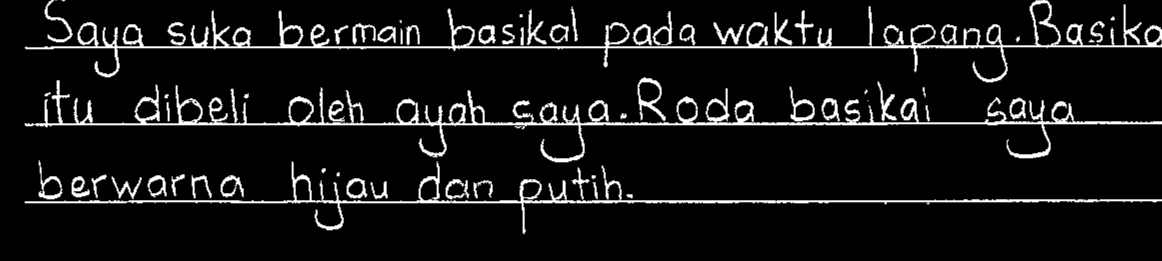 Saya suka bermain basikal pada waktu lapang. Basika
itu dibeli oleh ayah saya. Roda basikal saya
berwarna hijau dan putih.